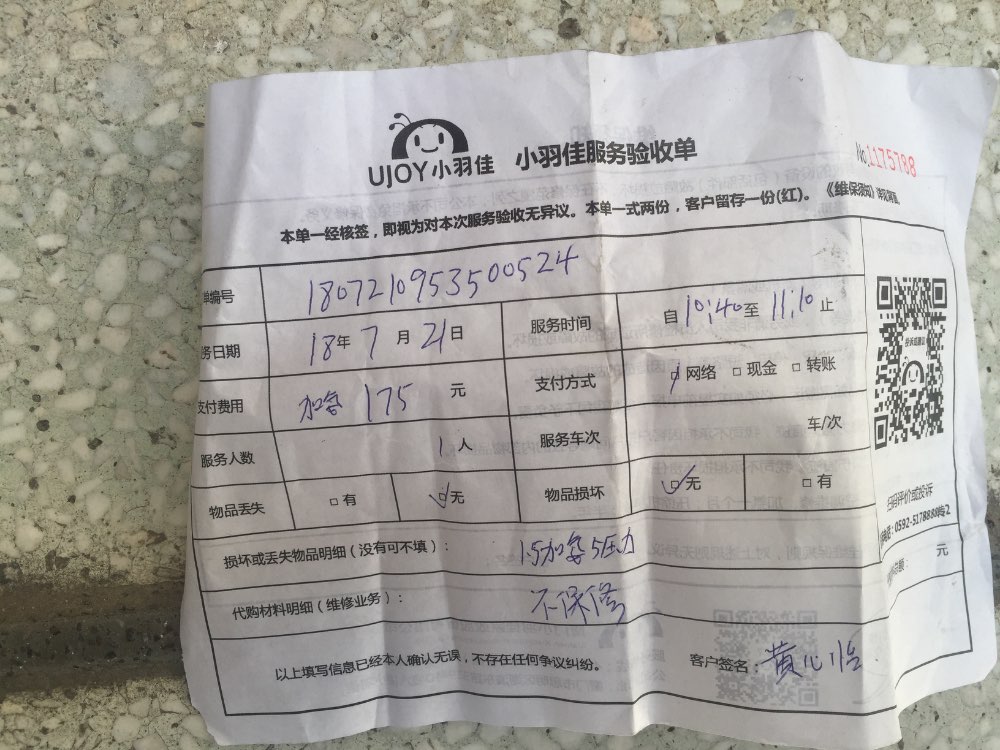 UJOY小羽佳 小羽佳服务验收单
No.1175788
本单一经核签，即视为对本次服务验收无异议。本单一式两份，客户留存一份(红)。《维保须知》详见背面
单编号 180721095350​0524
务日期 18年 7 月 21日 服务时间 自10:40至 11:10止
支付费用 175 元 支付方式 网络 现金 转账
服务人数 1人 服务车次 车/次
物品丢失 有 无 物品损坏 无 有
扫码评价或投诉
损坏或丢失物品明细（没有可不填）：
元
代购材料明细（维修业务）： 不保修
以上填写信息已经本人确认无误，不存在任何争议纠纷。 客户签名：黄心怡